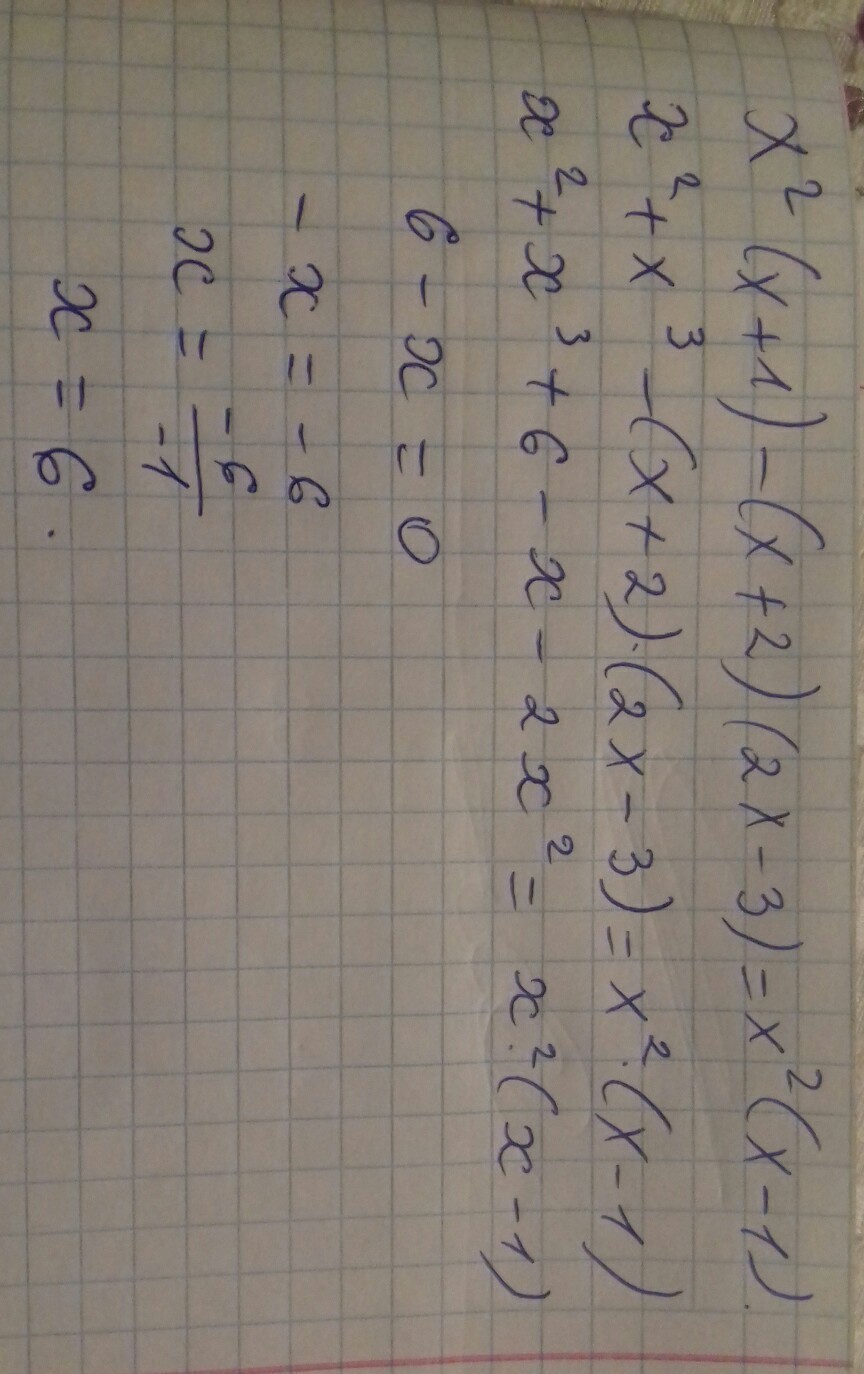 x²(x+1)-(x+2)(2x-3)=x²(x-1).
x²+x³-(x+2)·(2x-3)=x²·(x-1)
x²+x³+6-x-2x²=x²·(x-1)
6-x=0
-x=-6
x=-6/-1
x=6.